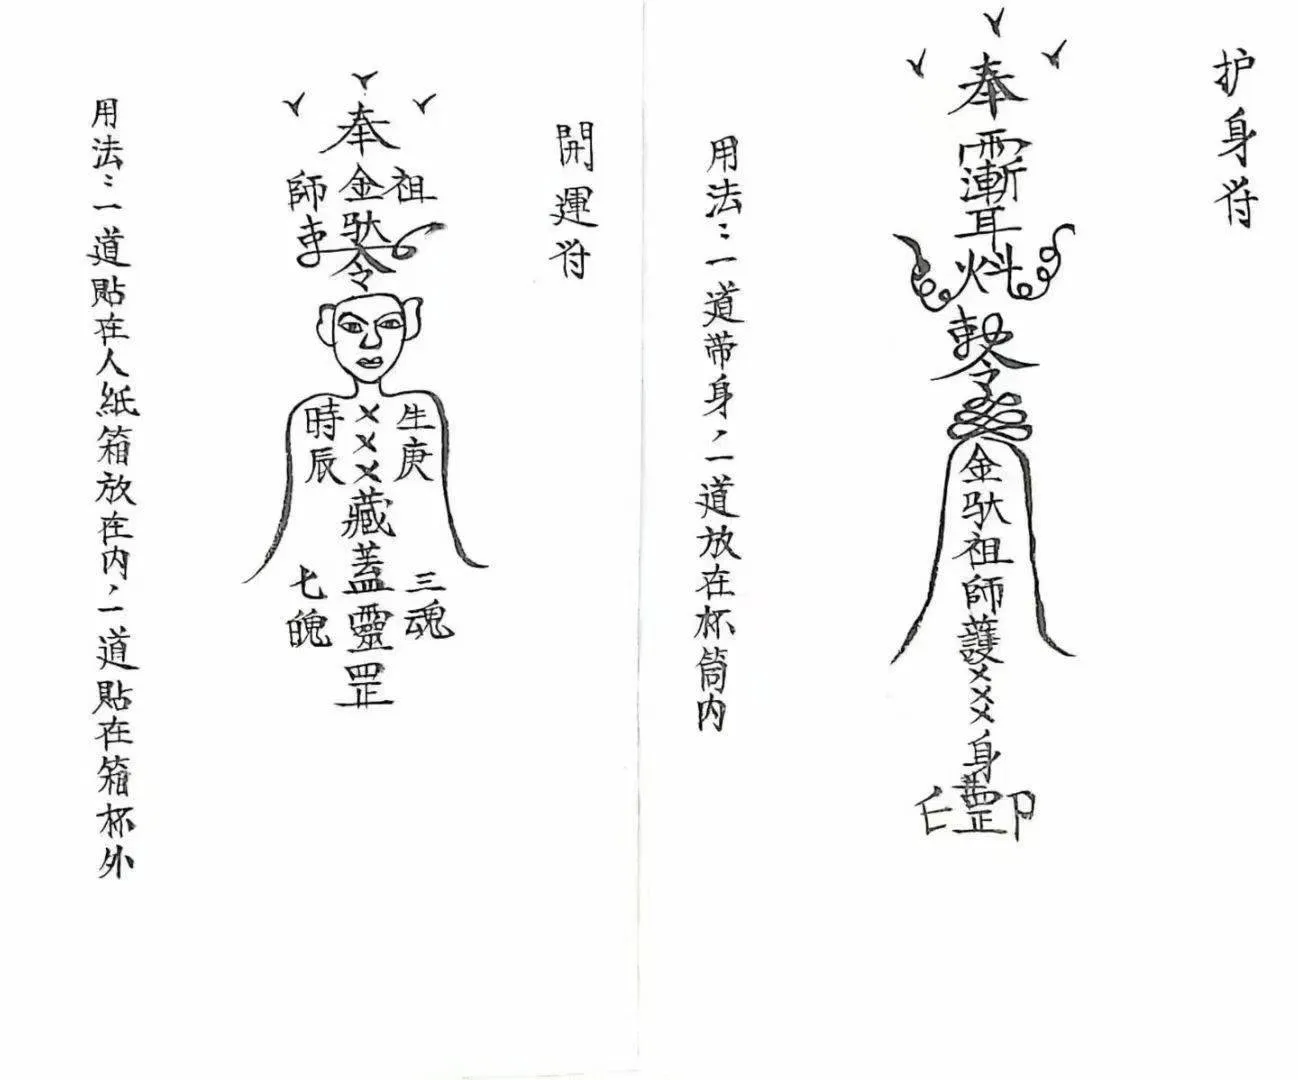 护身符
奉
斬耳
敕令
金䭾祖師護×××身
罡
用法：一道带身，一道放在杯筒内
開運符
奉
祖
金䭾
師
敕令
生庚
×××
時辰
藏蓋靈罡
三魂
七魄
用法：一道貼在人紙箱放在内，一道貼在箱杯外